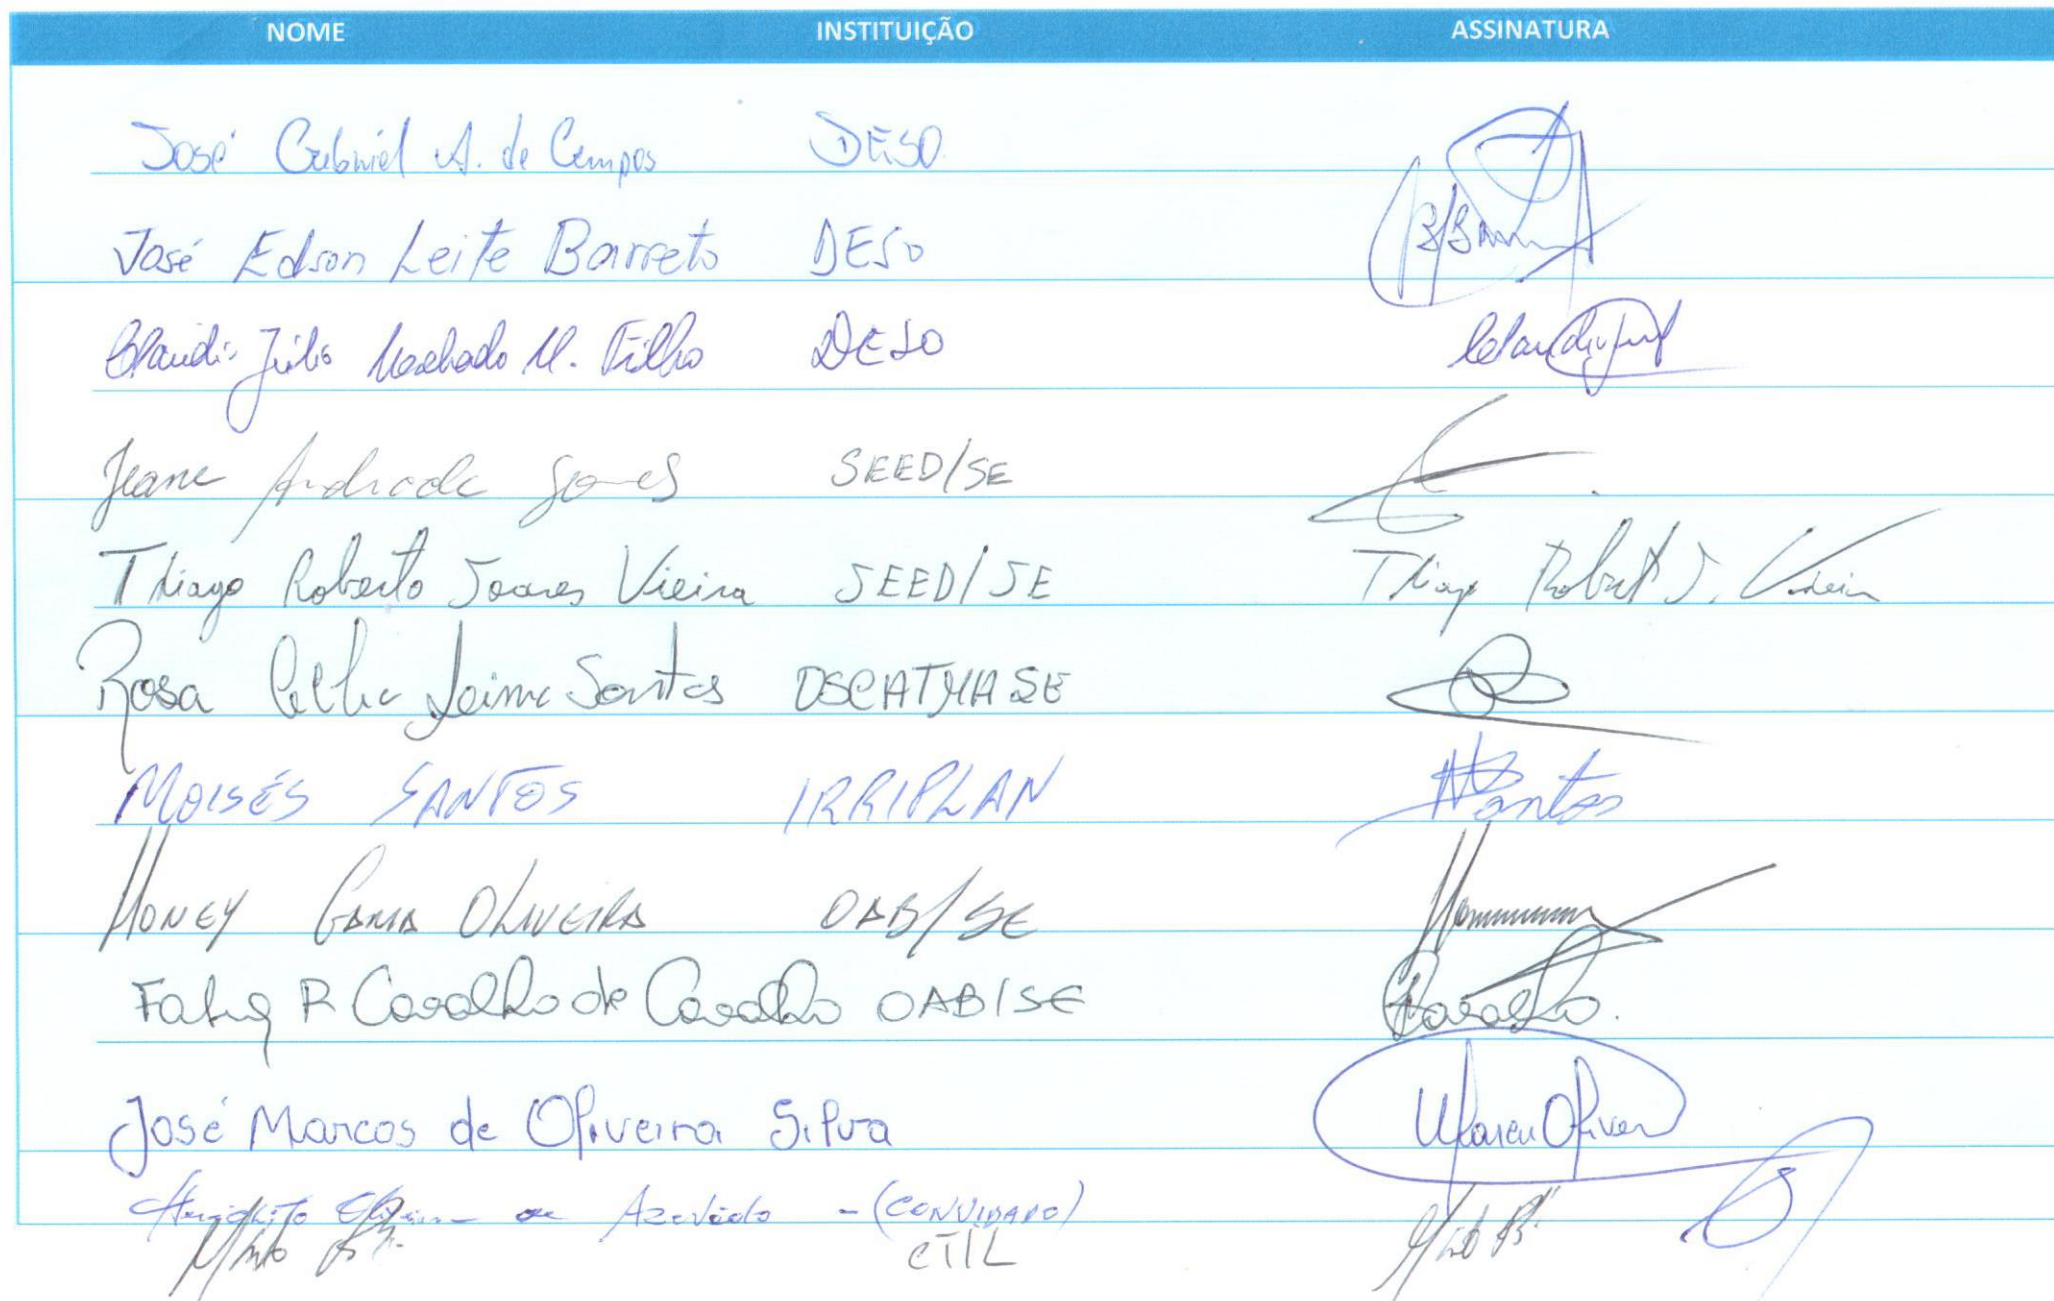 NOME INSTITUIÇÃO ASSINATURA
José Gabriel A. de Campos DESO
José Edson Leite Barreto DESO
Claudio Júlio Machado M. Filho DESO
Jeane Andrade Gomes SEED/SE
Thiago Roberto Soares Vieira SEED/SE Thiago Robert S. Vieira
Rosa Santos
MOISÉS SANTOS IRRIPLAN Santos
HONEY GAMA OLIVEIRA OAB/SE
R Carvalho de Carvalho OAB/SE Carvalho.
José Marcos de Oliveira Silva
Azevedo - (CONVIDADO)
CTIL